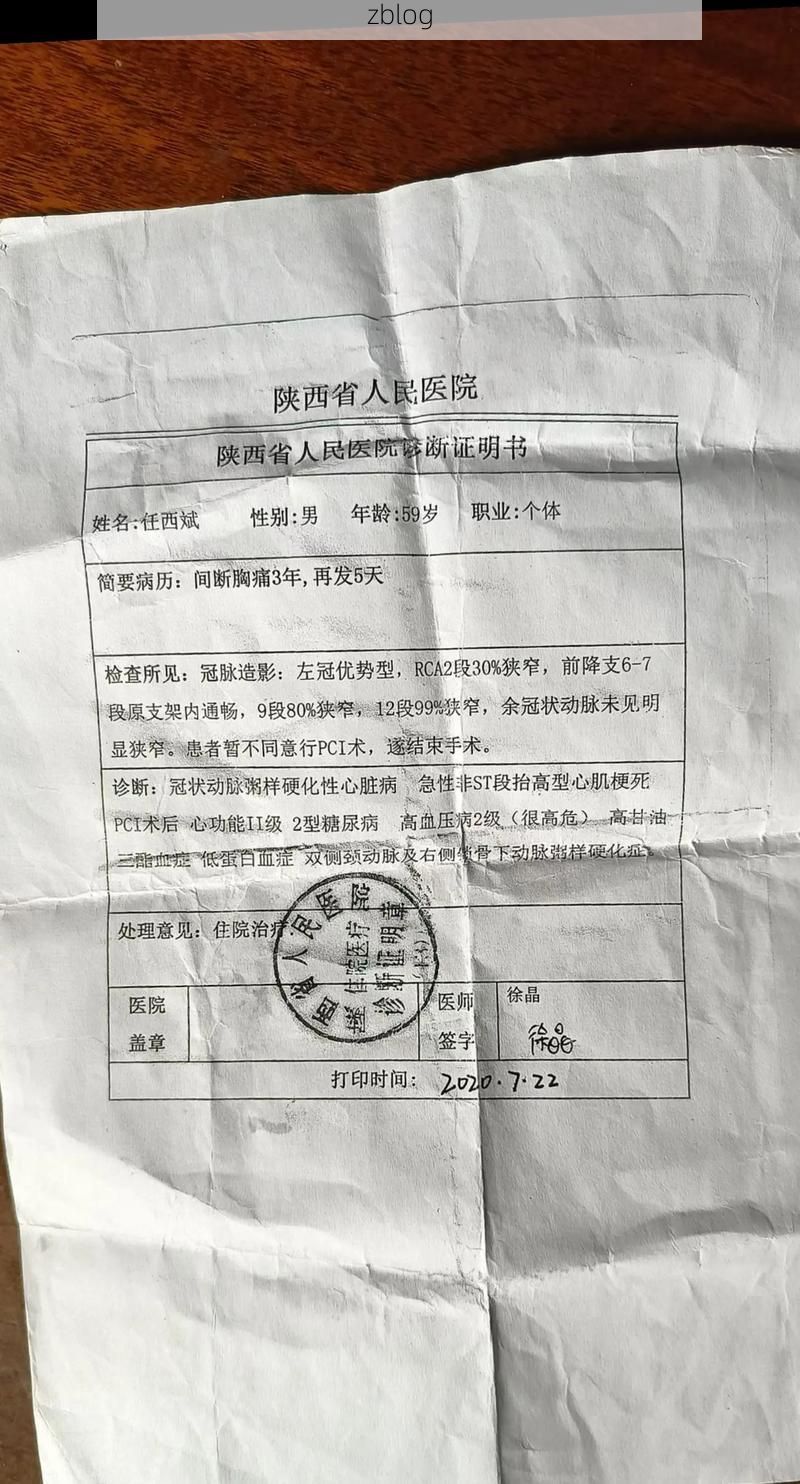 zblog
陕西省人民医院
陕西省人民医院诊断证明书
姓名:任西斌 性别:男 年龄:59岁 职业:个体
简要病历: 间断胸痛3年,再发5天
检查所见: 冠脉造影: 左冠优势型, RCA2段30%狭窄, 前降支6-7
段原支架内通畅, 9段80%狭窄, 12段99%狭窄, 余冠状动脉未见明
显狭窄。患者暂不同意行PCI术, 遂结束手术。
诊断: 冠状动脉粥样硬化性心脏病 急性非ST段抬高型心肌梗死
PCI术后 心功能II级 2型糖尿病 高血压病2级（很高危） 高甘油
三酯血症 低蛋白血症 双侧颈动脉及右侧锁骨下动脉粥样硬化症。
处理意见: 住院治疗.
西省人民医院
住院医疗
诊断证明章
医院
盖章
医师
签字
徐晶
徐晶
打印时间: 2020.7.22